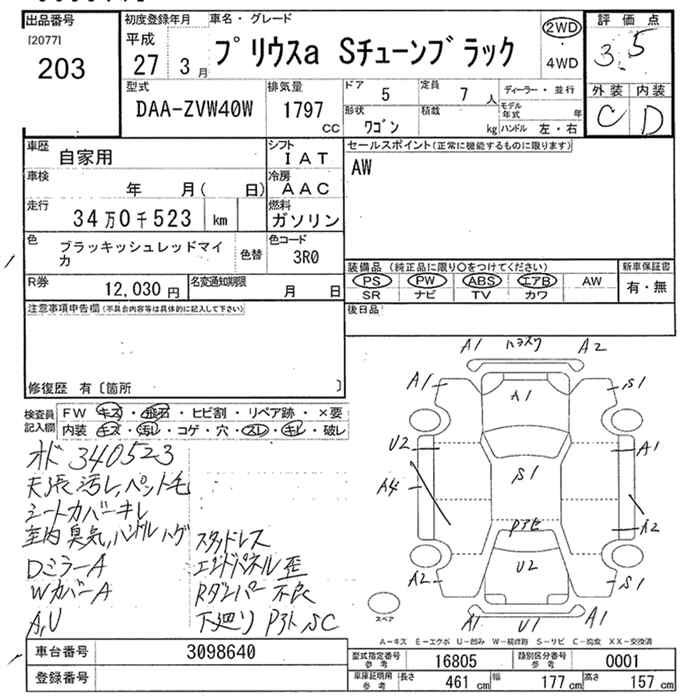 出品番号
[2077]
203
初度登録年月
平成
27 3月
車名・グレード
プリウスa Sチューンブラック
2WD
・
4WD
評価点
3.5
外装 内装
C D
型式
DAA-ZVW40W
排気量
1797
cc
ドア
5
定員
7 人
形状
ワゴン
積載
kg
ディーラー・並行
モデル年式 年
ハンドル 左・右
車歴
自家用
シフト
IAT
車検
年 月( 日)
冷房
AAC
走行
34万0千523 km
燃料
ガソリン
色
ブラッキッシュレッドマイカ
色替
色コード
3R0
R券
12,030 円
名変通知期限
月 日
セールスポイント(正常に機能するものに限ります)
AW
装備品 (純正品に限り○をつけてください)
PS PW ABS エアB AW
SR ナビ TV カワ
新車保証書
有・無
後日品
注意事項申告欄(不具合内容等は具体的に記入して下さい)
修復歴 有〔箇所 〕
検査員
記入欄
FW キズ・飛石・ヒビ割・リペア跡・×要
内装 キズ・汚レ・コゲ・穴・スレ・キレ・破レ
オド 340523
天張汚レ,ペット毛
シートカバーキレ
室内臭気,ハンドルハゲ
DミラーA
WカバーA
A,U
スタッドレス
エンドパネル歪
Rダンパー不良
下廻り Pタト SC
A1 ハヨスワ A2
A1 S1
A1
U2 A1
S1
A4
Pアセ A2
U2
A2 S1
A1 U1 A1
スペア
A-キズ E-エクボ U-凹み W-補修跡 S-サビ C-腐食 XX-交換済
車台番号
3098640
登録番号
型式指定番号
参考
16805
類別区分番号
参考
0001
車庫証明用
参考
長さ
461 cm
幅
177 cm
高さ
157 cm